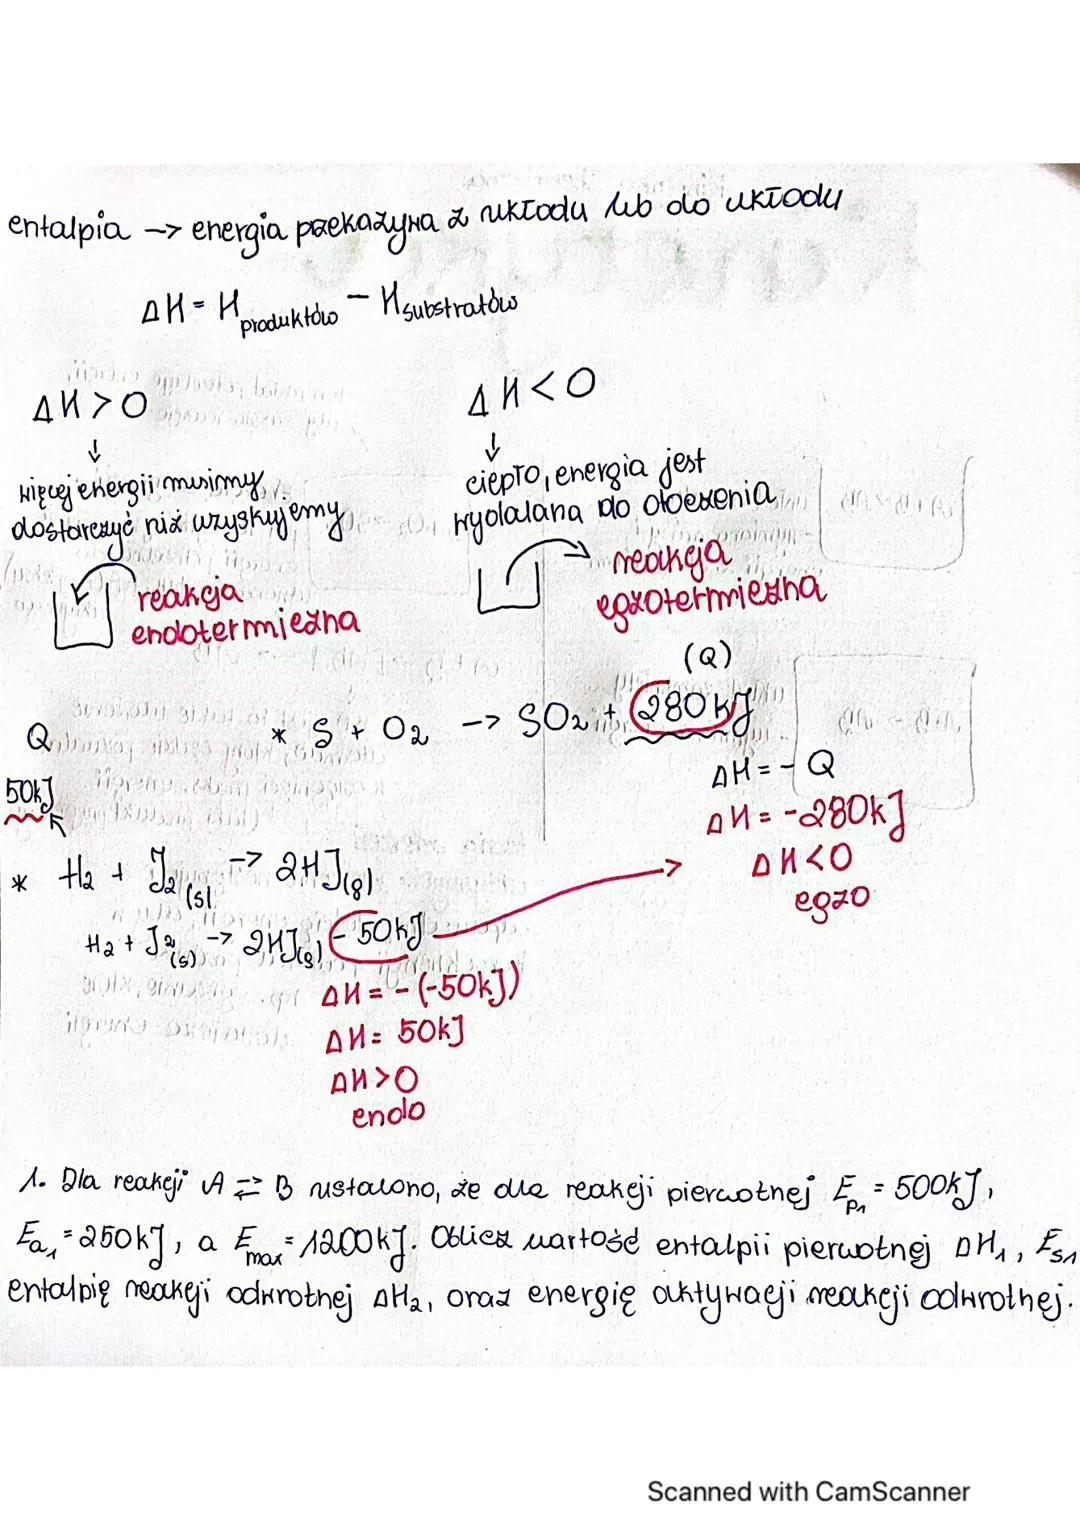 entalpia -> energia przekazyna z układu lub do układu
ΔH = H produktów - H substratów
ΔH > 0
ΔH < 0
↓
↓
więcej energii musimy
dostarczyć niż uzyskujemy
ciepło, energia jest
wydalana do otoczenia
reakcja
endotermiczna
reakcja
egzotermiczna
(Q)
* S + O₂ -> SO₂ + 280 kJ
ΔH = - Q
ΔH = -280kJ
ΔH < 0
egzo
Q
50kJ
* H₂ + J₂(s) -> 2HJ(g)
H₂ + J₂(s) -> 2HJ(g) - 50kJ
ΔH = - (-50kJ)
ΔH = 50kJ
ΔH > 0
endo
1. Dla reakcji A ⇄ B ustalono, że dla reakcji pierwotnej Ep₁ = 500kJ,
Ea₁ = 250kJ, a Emax = 1200kJ. Oblicz wartość entalpii pierwotnej ΔH₁, Es₁
entalpię reakcji odwrotnej ΔH₂, oraz energię aktywacji reakcji odwrotnej.
Scanned with CamScanner